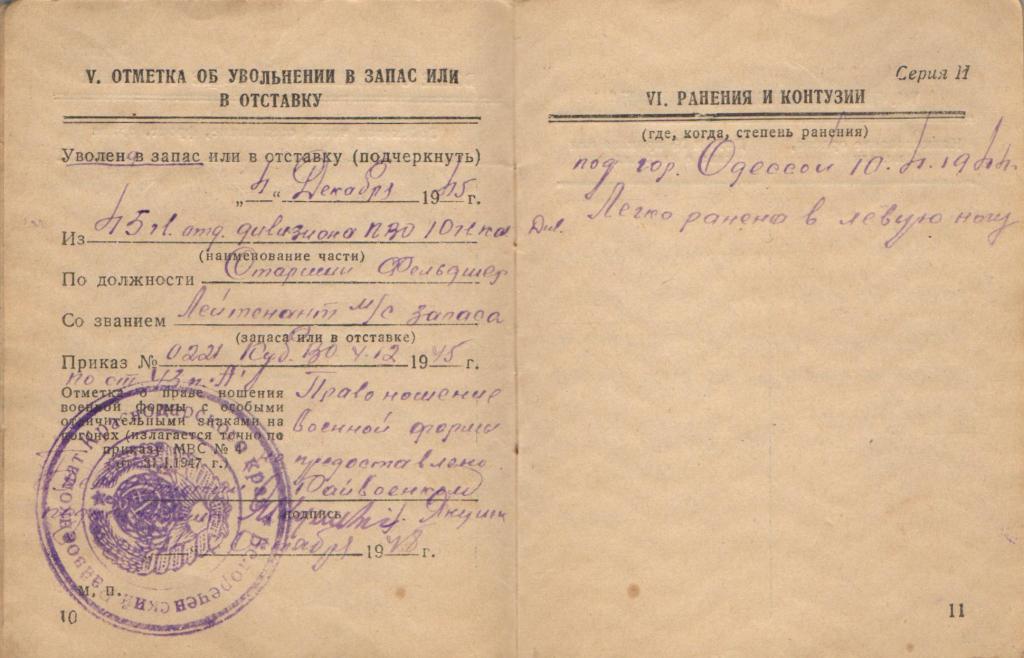 V. ОТМЕТКА ОБ УВОЛЬНЕНИИ В ЗАПАС ИЛИ
В ОТСТАВКУ
Уволена в запас или в отставку (подчеркнуть)
„4“ Декабря 1945 г.
Из 45 отд. дивизиона ПВО
(наименование части)
По должности Старший Фельдшер
Со званием Лейтенант м/с запаса
(запаса или в отставке)
Приказ № 0221 Куб. ВО 4.12 1945 г.
по ст. 43 п. „А“
Отметка о праве ношения
военной формы с особыми
отличительными знаками на
погонах (излагается точно по
приказу МВС № 4
от 31.I.1947 г.)
Право ношение
военной формы
не предоставлено
Райвоенком
подпись
1948 г.
Белореченский Райвоенкомат Краснодарского края
М. П.
10
Серия Н
VI. РАНЕНИЯ И КОНТУЗИИ
(где, когда, степень ранения)
под гор. Одессой 10.4.1944.
Легко ранена в левую ногу
11